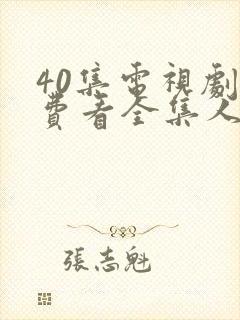 40集電視劇
費看全集人
張志魁